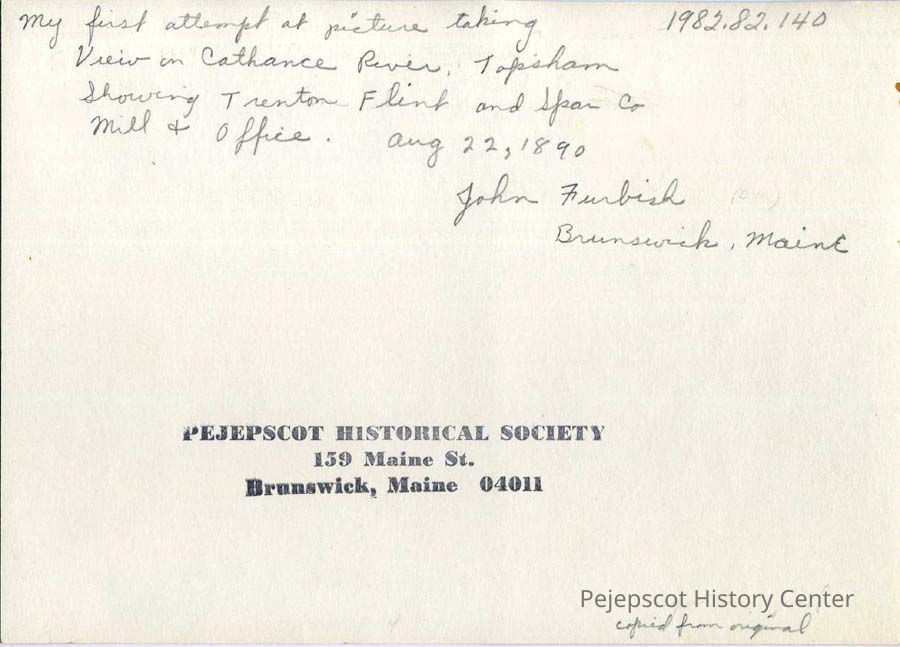 My first attempt at picture taking
1982.82.140
View on Cathance River, Topsham
Showing Trenton Flint and Spar Co
Mill & Office. Aug 22, 1890
John Furbish
Brunswick, Maine
PEJEPSCOT HISTORICAL SOCIETY
159 Maine St.
Brunswick, Maine 04011
Pejepscot History Center
copied from original